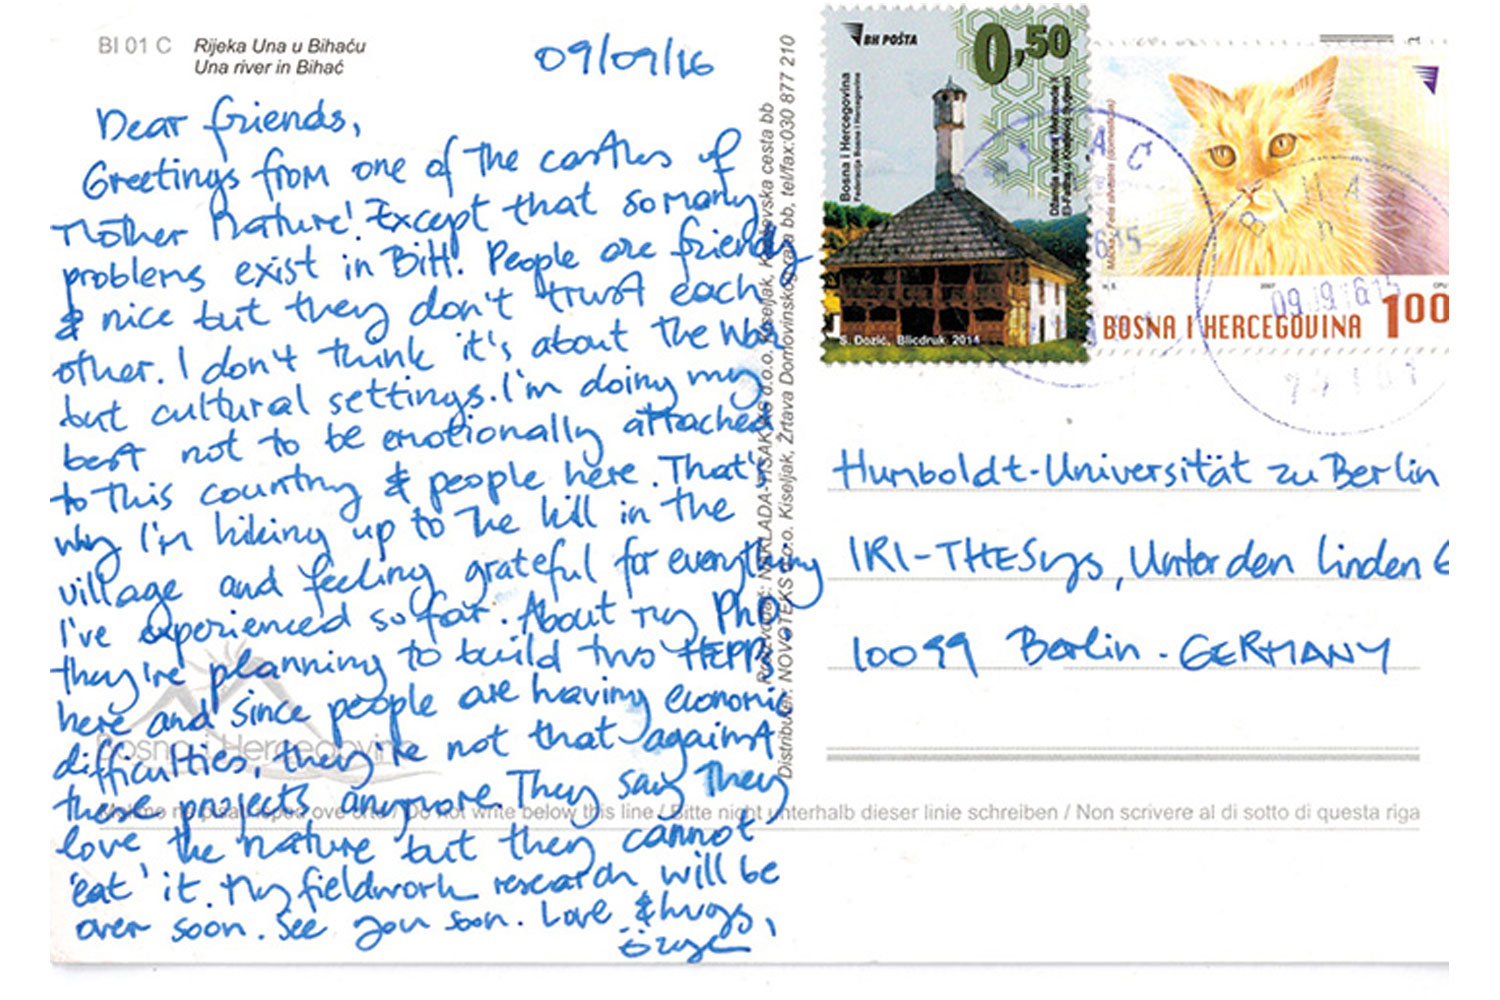 BI 01 C
Rijeka Una u Bihaću
Una river in Bihać
09/09/16
Dear friends,
Greetings from one of the castles of
Mother Nature! Except that so many
problems exist in BiH. People are friendly
& nice but they don't trust each
other. I don't think it's about the war
but cultural settings. I'm doing my
best not to be emotionally attached
to this country & people here. That's
why I'm hiking up to the hill in the
village and feeling grateful for everything
I've experienced so far. About my PhD,
they're planning to build two HEPPs
here and since people are having economic
difficulties, they're not that against
these projects anymore. They say they
love the nature but they cannot
'eat' it. My fieldwork research will be
over soon. See you soon. Love & hugs,
Bosna i Hercegovina
Do not write below this line / Bitte nicht unterhalb dieser linie schreiben / Non scrivere al di sotto di questa riga
NAKLADA d.o.o. Kiseljak, cesta bb
Distributer: NOVOTEKS d.o.o. Kiseljak, Žrtava Domovinskog rata bb, tel/fax:030 877 210
BH POŠTA
0,50
Bosna i Hercegovina
Federacija Bosne i Hercegovine
S. Dozić, Blicdruk 2014
2007
BOSNA I HERCEGOVINA 100
BIHAĆ
Humboldt-Universität zu Berlin
IRI-THESys, Unter den Linden 6
10099 Berlin - GERMANY